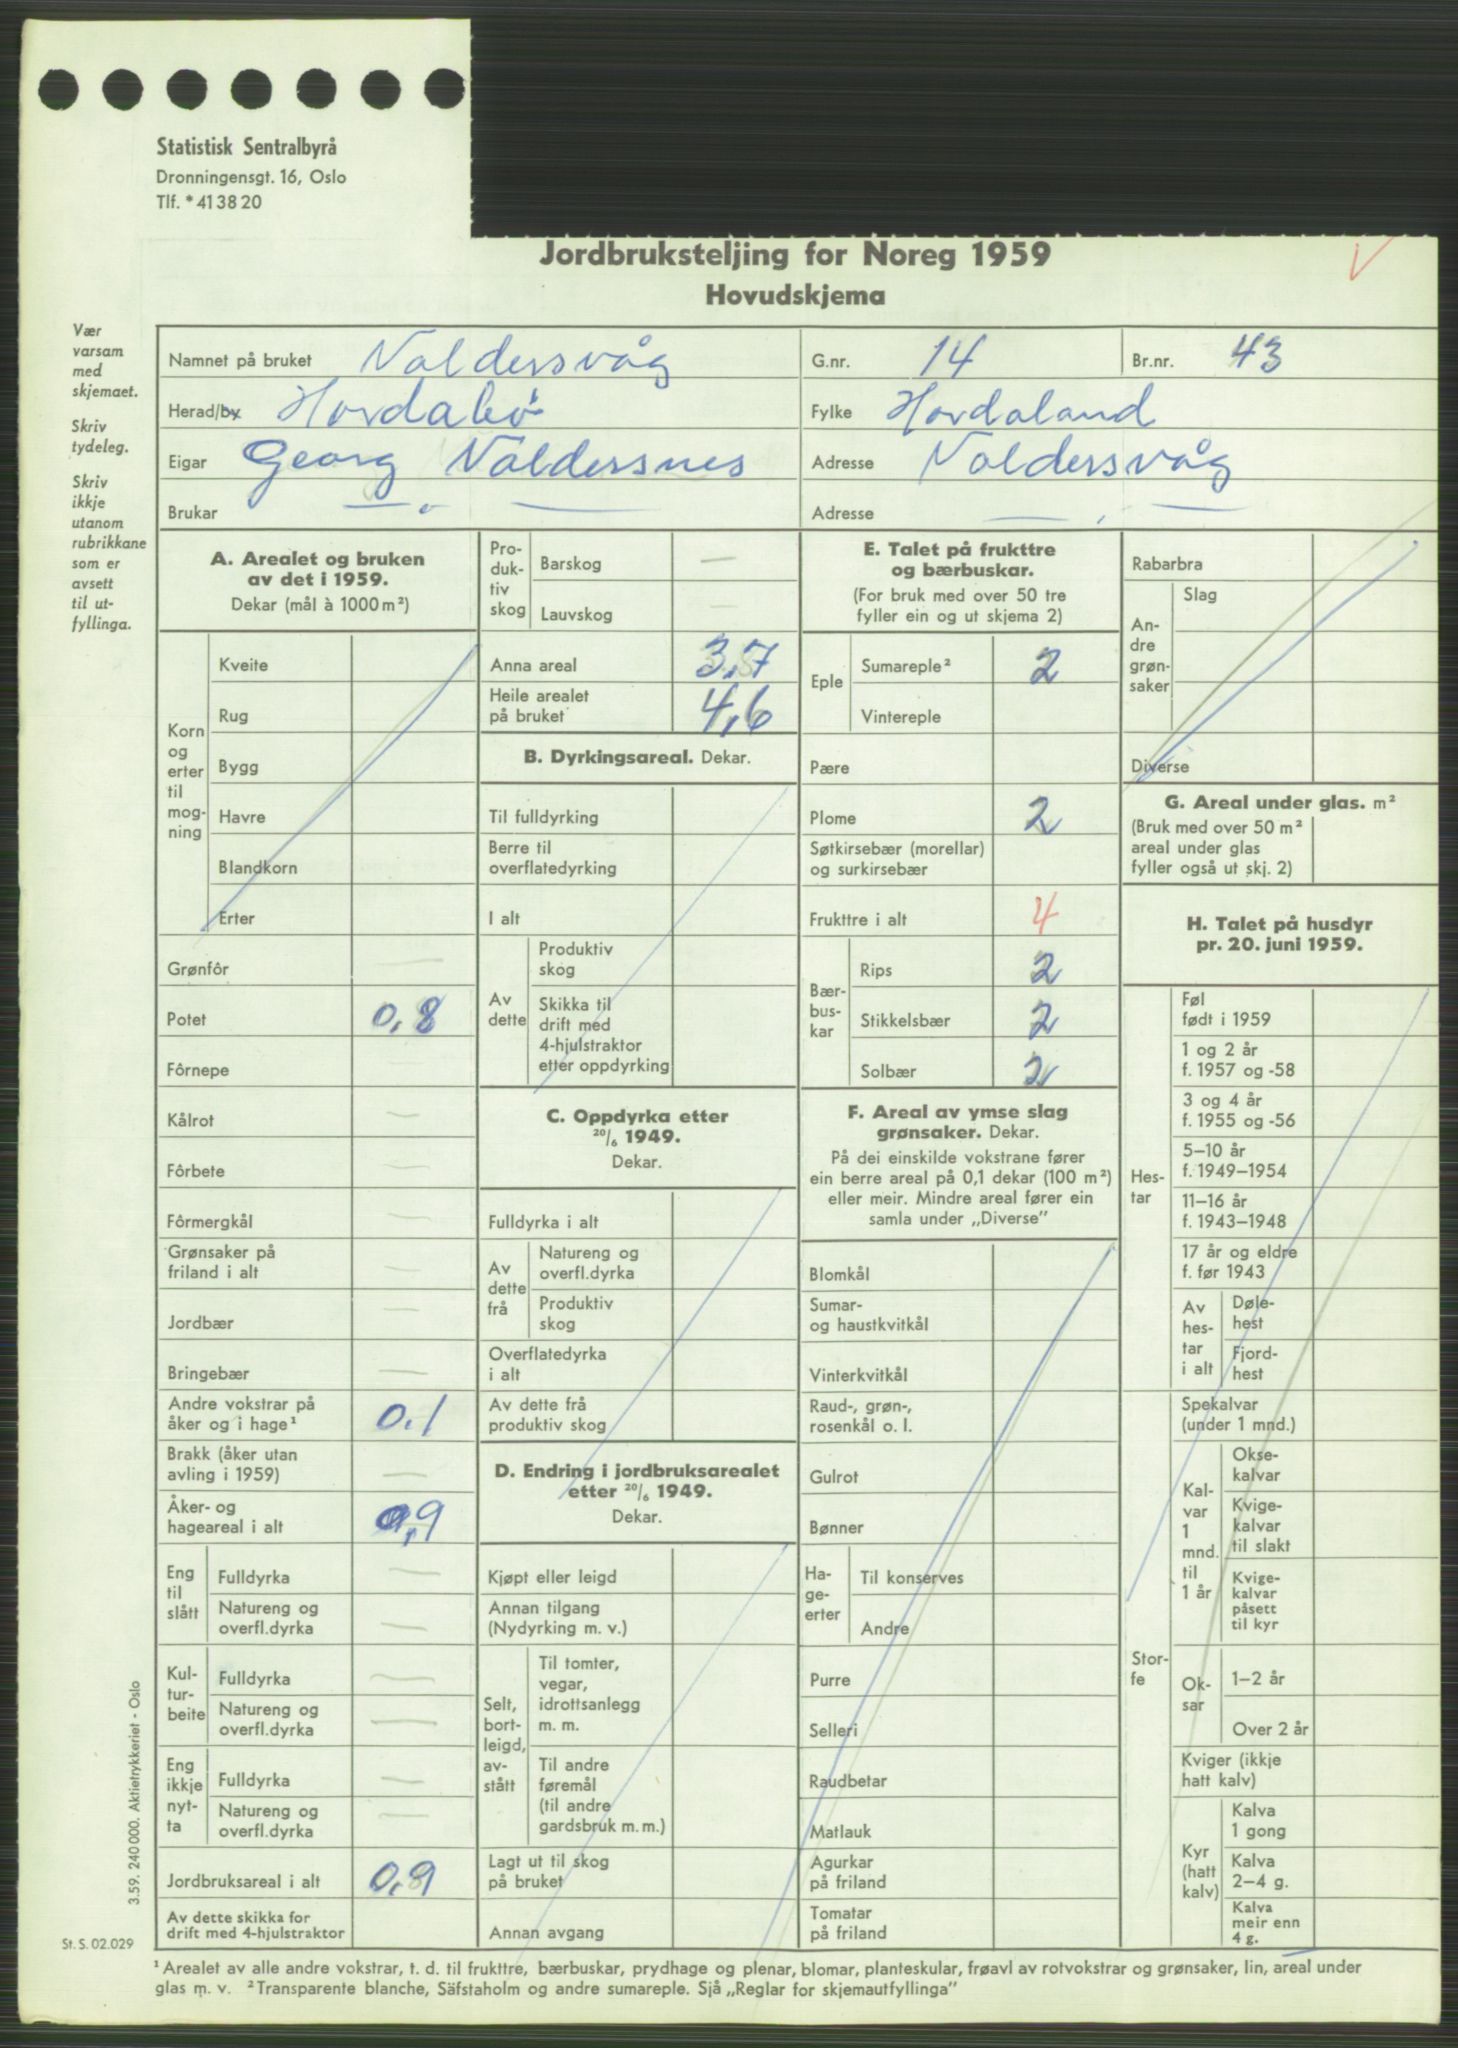 Statistisk Sentralbyrå
Dronningensgt. 16, Oslo
Tlf. * 41 38 20
Jordbruksteljing for Noreg 1959
Hovudskjema
Vær
varsam
med
skjemaet.
Skriv
tydeleg.
Skriv
ikkje
utanom
rubrikkane
som er
avsett
til ut-
fyllinga.
Namnet på bruket Valdersvåg G.nr. 14 Br.nr. 43
Herad/by Hordabø Fylke Hordaland
Eigar Georg Valdersnes Adresse Valdersvåg
Brukar — „ — Adresse — „ —
A. Arealet og bruken
av det i 1959.
Dekar (mål à 1000 m²)
Korn
og
erter
til
mog-
ning
Kveite
Rug
Bygg
Havre
Blandkorn
Erter
Grønfôr —
Potet 0,8
Fôrnepe —
Kålrot —
Fôrbete —
Fôrmergkål —
Grønsaker på
friland i alt —
Jordbær —
Bringebær —
Andre vokstrar på
åker og i hage¹ 0,1
Brakk (åker utan
avling i 1959) —
Åker- og
hageareal i alt 0,9
Eng
til
slått
Fulldyrka —
Natureng og
overfl.dyrka —
Kul-
tur-
beite
Fulldyrka —
Natureng og
overfl.dyrka —
Eng
ikkje
nyt-
ta
Fulldyrka —
Natureng og
overfl.dyrka —
Jordbruksareal i alt 0,9
Av dette skikka for
drift med 4-hjulstraktor
Pro-
duk-
tiv
skog
Barskog —
Lauvskog —
Anna areal 3,7
Heile arealet
på bruket 4,6
B. Dyrkingsareal. Dekar.
Til fulldyrking
Berre til
overflatedyrking
I alt
Av
dette
Produktiv
skog
Skikka til
drift med
4-hjulstraktor
etter oppdyrking
C. Oppdyrka etter
20/6 1949.
Dekar.
Fulldyrka i alt
Av
dette
frå
Natureng og
overfl.dyrka
Produktiv
skog
Overflatedyrka
i alt
Av dette frå
produktiv skog
D. Endring i jordbruksarealet
etter 20/6 1949.
Dekar.
Kjøpt eller leigd
Annan tilgang
(Nydyrking m. v.)
Selt,
bort-
leigd,
av-
stått
Til tomter,
vegar,
idrottsanlegg
m. m.
Til andre
føremål
(til andre
gardsbruk m. m.)
Lagt ut til skog
på bruket
Annan avgang
E. Talet på frukttre
og bærbuskar.
(For bruk med over 50 tre
fyller ein og ut skjema 2)
Eple
Sumareple² 2
Vintereple
Pære
Plome 2
Søtkirsebær (morellar)
og surkirsebær
Frukttre i alt 4
Bær-
bus-
kar
Rips 2
Stikkelsbær 2
Solbær 2
F. Areal av ymse slag
grønsaker. Dekar.
På dei einskilde vokstrane fører
ein berre areal på 0,1 dekar (100 m²)
eller meir. Mindre areal fører ein
samla under „Diverse”
Blomkål
Sumar-
og haustkvitkål
Vinterkvitkål
Raud-, grøn-,
rosenkål o. l.
Gulrot
Bønner
Ha-
ge-
erter
Til konserves
Andre
Purre
Selleri
Raudbetar
Matlauk
Agurkar
på friland
Tomatar
på friland
Rabarbra
An-
dre
grøn-
saker
Slag
Diverse
G. Areal under glas. m²
(Bruk med over 50 m²
areal under glas
fyller også ut skj. 2)
H. Talet på husdyr
pr. 20. juni 1959.
Hes-
tar
Føl
født i 1959
1 og 2 år
f. 1957 og -58
3 og 4 år
f. 1955 og -56
5–10 år
f. 1949–1954
11–16 år
f. 1943–1948
17 år og eldre
f. før 1943
Av
hes-
tar
i alt
Døle-
hest
Fjord-
hest
Stor-
fe
Spekalvar
(under 1 mnd.)
Kal-
var
1
mnd.
til
1 år
Okse-
kalvar
Kvige-
kalvar
til slakt
Kvige-
kalvar
påsett
til kyr
Ok-
sar
1–2 år
Over 2 år
Kviger (ikkje
hatt kalv)
Kyr
(hatt
kalv)
Kalva
1 gong
Kalva
2–4 g.
Kalva
meir enn
4 g.
3.59. 240 000. Aktietrykkeriet - Oslo
St. S. 02.029
¹ Arealet av alle andre vokstrar, t. d. til frukttre, bærbuskar, prydhage og plenar, blomar, planteskular, frøavl av rotvokstrar og grønsaker, lin, areal under
glas m. v. ² Transparente blanche, Säfstaholm og andre sumareple. Sjå „Reglar for skjemautfyllinga”